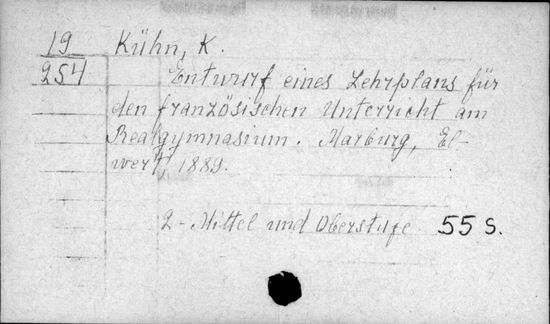 19 Kühn, K.
254 Entwurf eines Lehrplans für
den französischen Unterricht am
Realgymnasium. Marburg, El-
wert, 1889.
2-Mittel und Oberstufe 55 S.